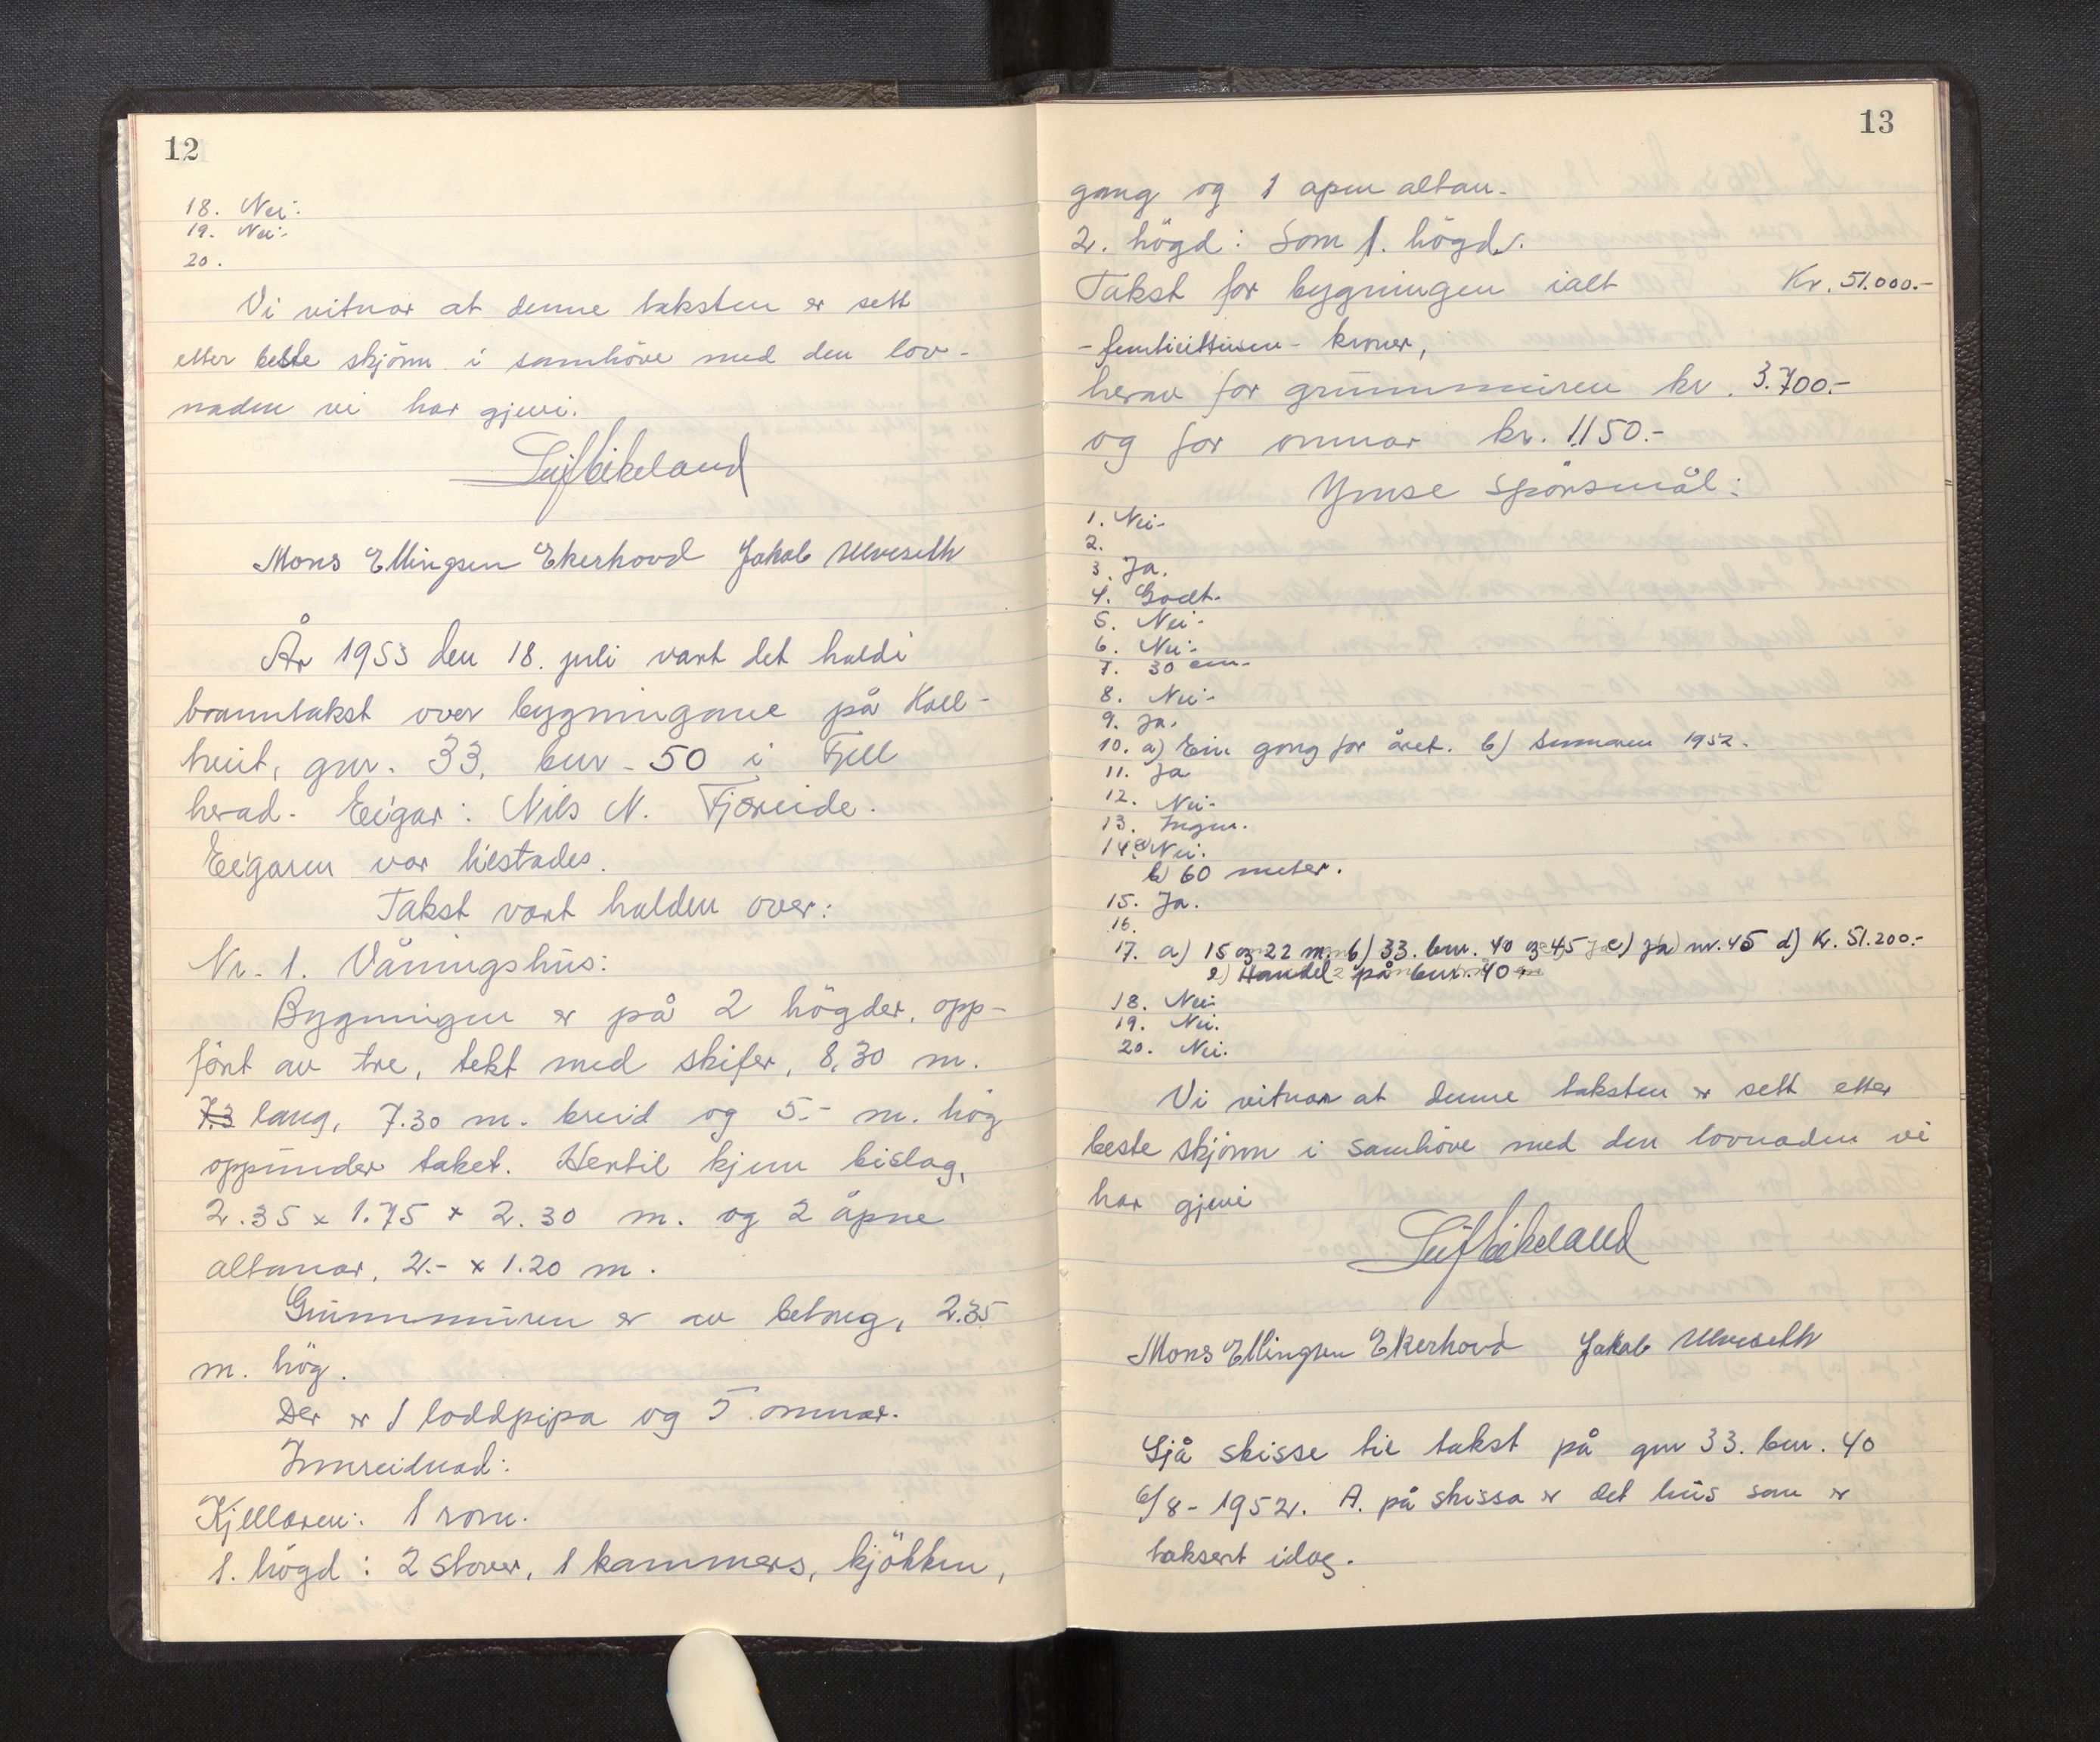 12
18. Nei.
19. Nei.
20.
Vi vitnar at denne taksten er sett
etter beste skjönn i samhöve med den lov-
naden vi har gjevi.
Leif Eikeland
Mons Ellingsen Ekerhovd Jakob Ulveseth
År 1953 den 18. juli vart det haldi
branntakst over bygningane på Koll-
tveit, gnr. 33, bnr. 50 i Fjell
herad. Eigar: Nils N. Fjæreide.
Eigaren var tilstades.
Takst vart halden over:
Nr. 1. Våningshus:
Bygningen er på 2 högder, opp-
fört av tre, tekt med skifer, 8.30 m.
7.3 lang, 7.30 m. breid og 5.- m. hög
oppunder taket. Hertil kjem bislag,
2.35 x 1.75 x 2.30 m. og 2 åpne
altanar, 2.- x 1.20 m.
Grunnmuren er av betong, 2.35
m. hög.
Der er 1 loddpipa og 5 omnar.
Innreidnad:
Kjellaren: 1 rom.
1. högd: 2 stover, 1 kammers, kjökken,
13
gang og 1 apen altan.
2. högd: Som 1. högd.
Takst for bygningen ialt Kr. 51.000.-
- femtieittusen - kroner,
herav for grunnmuren kr. 3.700.-
og for omnar kr. 1150.-
Ymse spörsmål:
1. Nei.
2.
3. Ja.
4. Godt.
5. Nei.
6. Nei.
7. 30 cm.
8. Nei.
9. Ja.
10. a) Ein gong for året. b) Sumaren 1952.
11. Ja
12. Nei.
13. Ingen.
14. a) Nei.
b) 60 meter.
15. Ja.
16.
17. a) 15 og 22 m. b) 33. bnr. 40 og 45 c) Ja nr. 45 d) Kr. 51.200.-
e) Handel på bnr. 40
18. Nei
19. Nei.
20. Nei.
Vi vitnar at denne taksten er sett etter
beste skjönn i samhöve med den lovnaden vi
har gjevi
Leif Eikeland
Mons Ellingsen Ekerhovd Jakob Ulveseth
Sjå skisse til takst på gnr 33. bnr. 40
6/8-1952. A. på skissa er det hus som er
taksert idag.